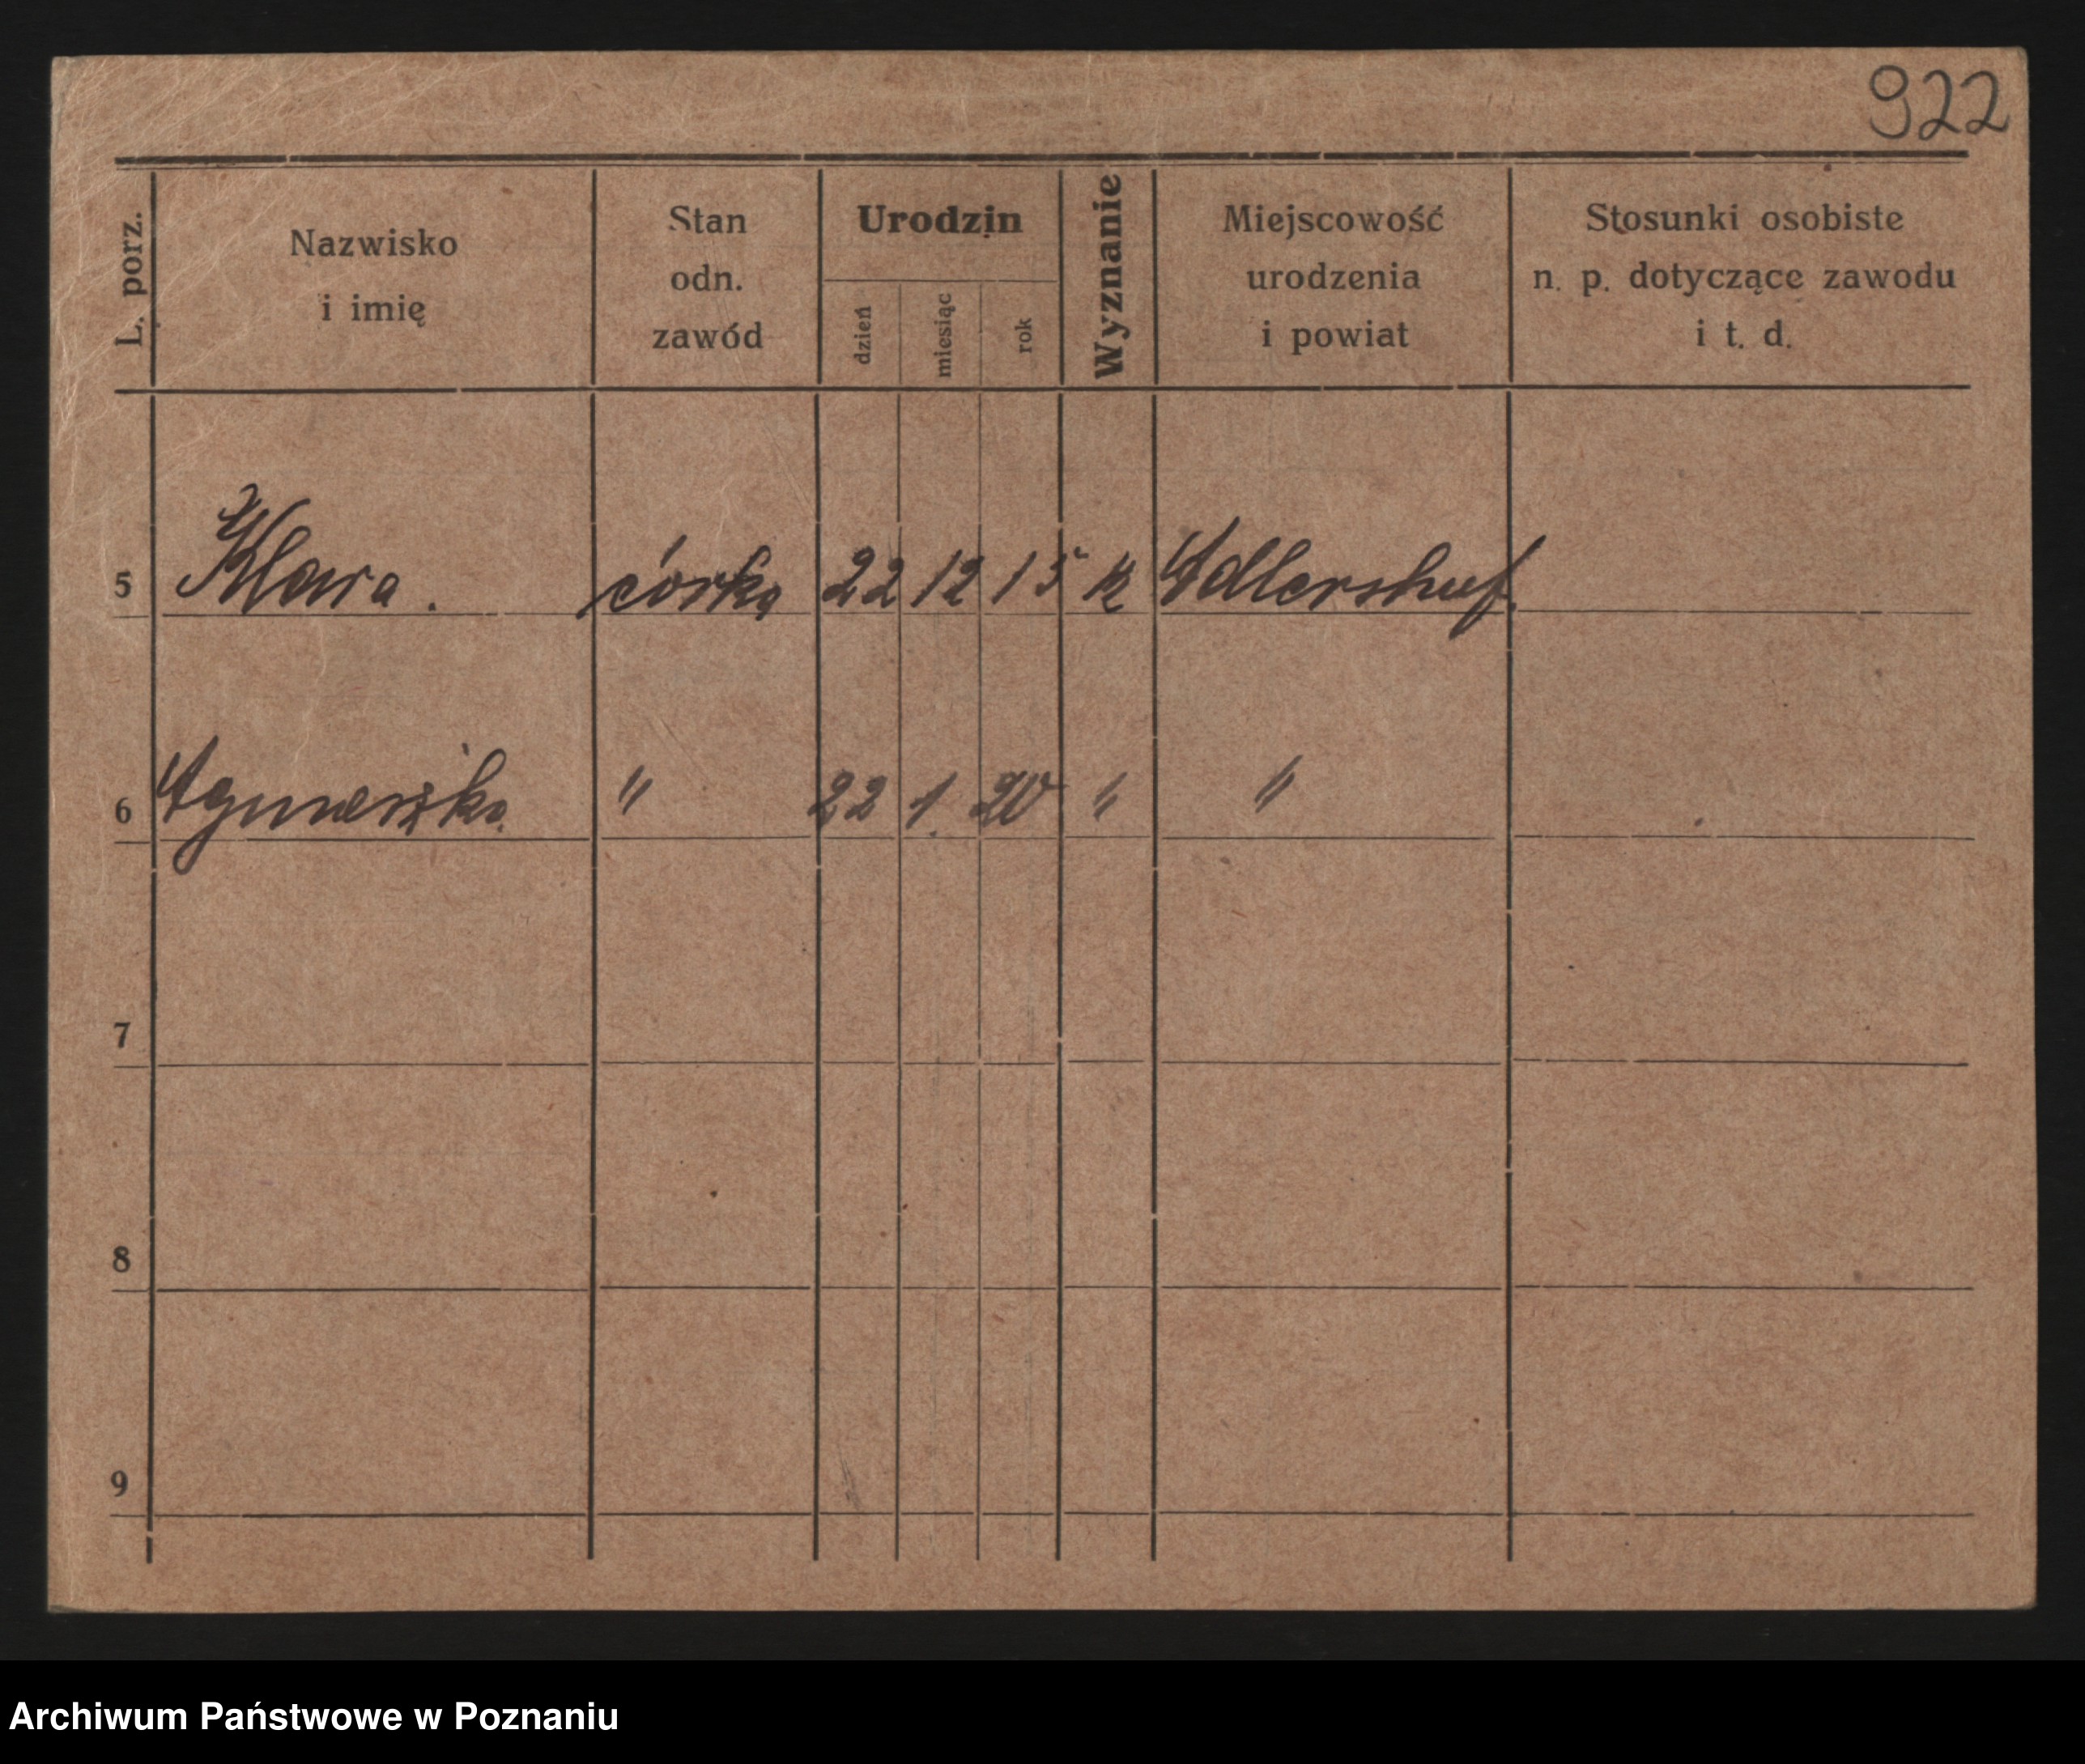 922
L. porz.
Nazwisko
i imię
Stan
odn.
zawód
Urodzin
dzień
miesiąc
rok
Wyznanie
Miejscowość
urodzenia
i powiat
Stosunki osobiste
n. p. dotyczące zawodu
i t. d.
5 Klara. córka 22 12 15 k Adlershuf.
6 Agnieszka " 22 1. 20 " "
7
8
9
Archiwum Państwowe w Poznaniu